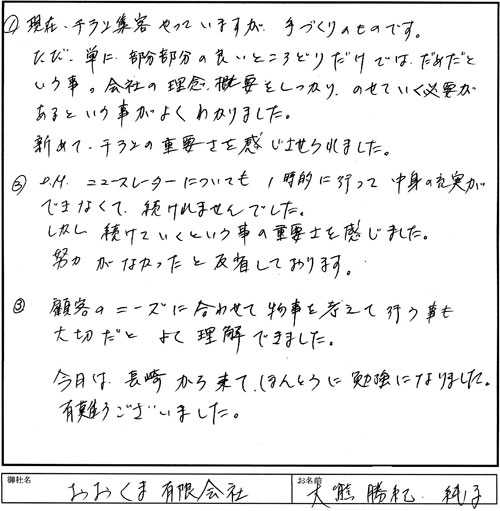 ① 現在、チラシ集客やっていますが、手づくりのものです。
ただ、単に部分部分の良いところどりだけでは、だめだと
いう事。会社の理念、概要をしっかり、のせていく必要が
あるという事がよくわかりました。
新めて、チラシの重要さを感じさせられました。
② D.M. ニュースレターについても 1時的に行って中身の充実が
できなくて、続けれませんでした。
しかし 続けていくという事の重要さを感じました。
努力がなかったと反省しております。
③ 顧客のニーズに合わせて物事を考えて行う事も
大切だと よく理解できました。
今日は、長崎から来て、ほんとうに勉強になりました。
有難うございました。
御社名 おおくま有限会社 お名前 大熊勝紀 純子